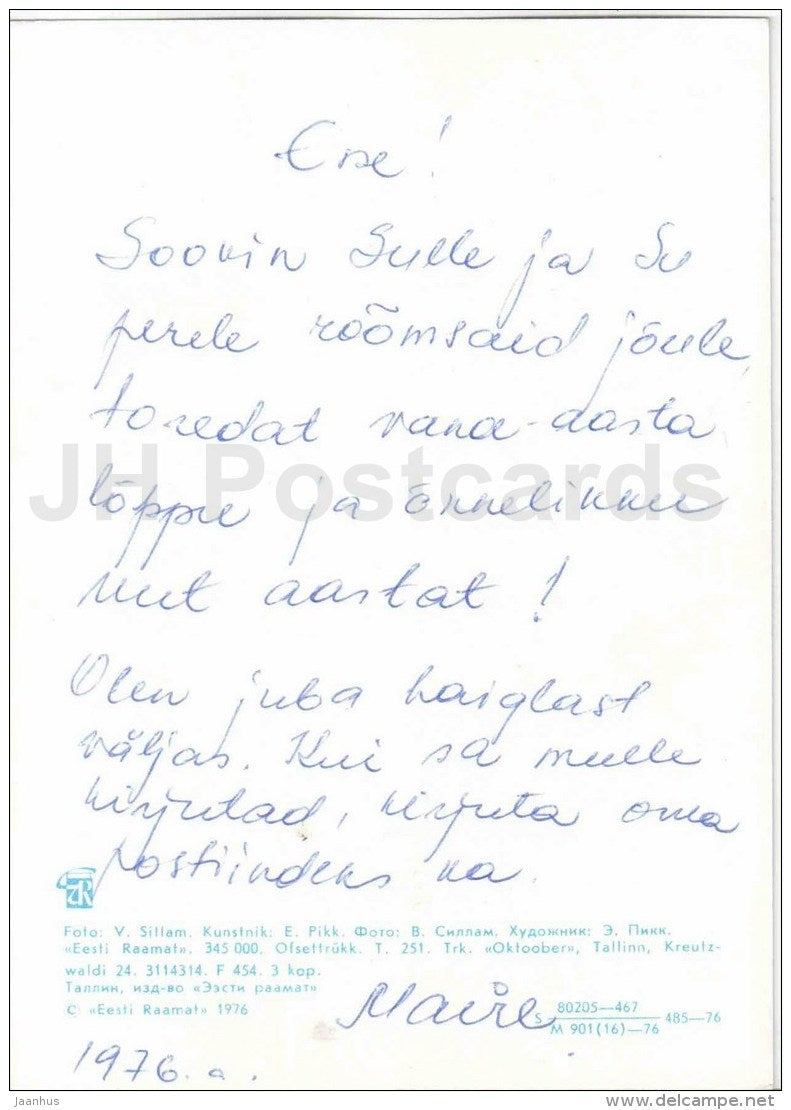 Ene!
Soovin Sulle ja Su
perele rõõmsaid jõule,
toredat vana-aasta
lõppu ja õnnelikku
uut aastat!
Olen juba haiglast
väljas. Kui sa mulle
kirjutad, kirjuta oma
postiindeks ka.
Foto: V. Sillam. Kunstnik: E. Pikk. Фото: В. Силлам. Художник: Э. Пикк.
«Eesti Raamat». 345 000. Ofsettrükk. T. 251. Trk. «Oktoober», Tallinn, Kreutz-
waldi 24. 3114314. F 454. 3 kop.
Таллин, изд-во «Ээсти раамат»
© «Eesti Raamat» 1976
S 80205—467
M 901(16)—76 485—76
Maire
1976.a.
JH Postcards
Jaanhus
www.delcampe.net